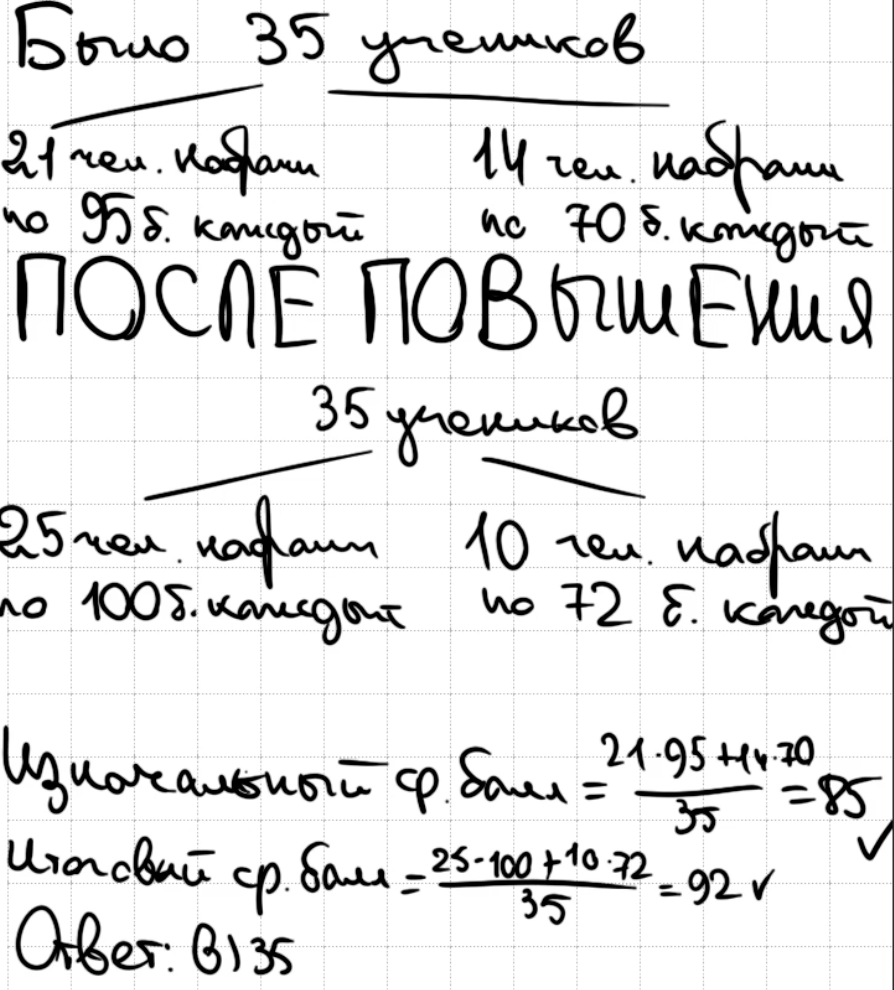 Было 35 учеников
21 чел. набрали 14 чел. набрали
по 95 б. каждый по 70 б. каждый
ПОСЛЕ ПОВЫШЕНИЯ
35 учеников
25 чел. набрали 10 чел. набрали
по 100 б. каждый по 72 б. каждый
Изначальный ср. балл = (21·95+14·70)/35 = 85 ✓
Итоговый ср. балл = (25·100+10·72)/35 = 92 ✓
Ответ: в) 35